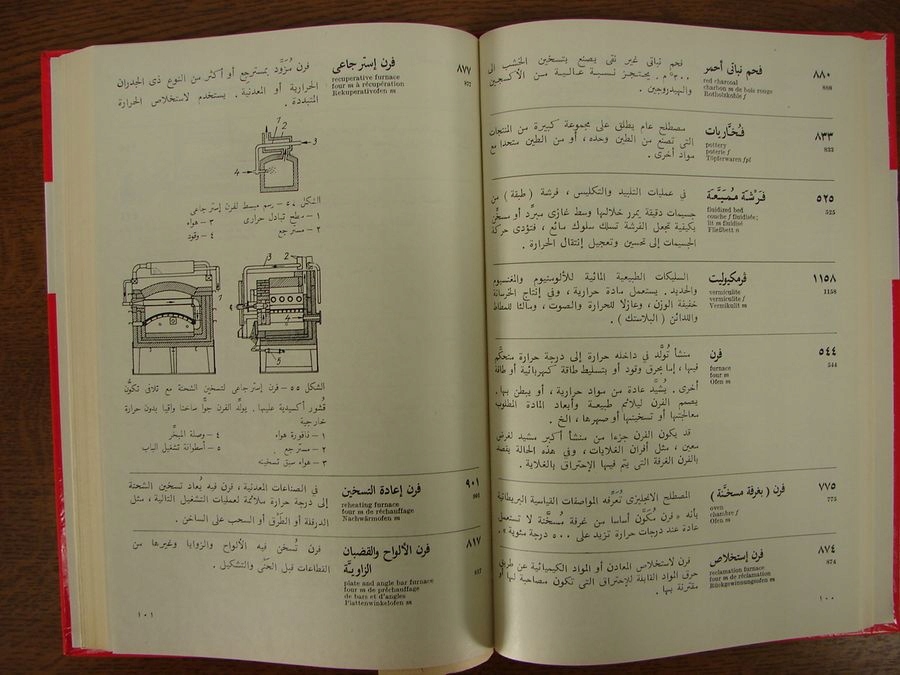 ٨٨٠
فحم نباتى أحمر
888
red charcoal
charbon m de bois rouge
Rotholzkohle f
فحم نباتى غير نقى يصنع بتسخين الخشب الى
٣٠٠°م . يحتجز نسبة عالية من الأكسجين
والهيدروجين .
٨٣٣
فُخَّاريات
833
pottery
poterie f
Töpferwaren fpl
مصطلح عام يطلق على مجموعة كبيرة من المنتجات
التى تصنع من الطين وحده ، أو من الطين متحدا مع
مواد أخرى .
٥٢٥
فَرْشة مُمَيَّعَة
525
fluidized bed
couche f fluidisée;
lit m fluidisé
Fließbett n
فى عمليات التلبيد والتكليس ، فرشة ( طبقة ) من
جسيمات دقيقة يمرر خلالها وسط غازى مبرِّد أو مسخِّن
بكيفية تجعل الفرشة تسلك سلوك مائع ، فتؤدى حركة
الجسيمات إلى تحسين وتعجيل إنتقال الحرارة .
١١٥٨
ڤرمكيوليت
1158
vermiculite
vermiculite f
Vermikulit m
السليكات الطبيعية المائية للألومنيوم والمغنسيوم
والحديد . يستعمل مادة حرارية ، وفى إنتاج الخرسانة
خفيفة الوزن ، وعازلا للحرارة والصوت ، ومالئا للمطاط
واللدائن ( البلاستك ) .
٥٤٤
فرن
544
furnace
four m
Ofen m
منشأ تُولَّد فى داخله حرارة إلى درجة حرارة متحكَّم
فيها، إما بحرق وقود أو بتسليط طاقة كهربائية أو طاقة
أخرى . يُشيَّد عادة من مواد حرارية ، أو يبطن بها .
يصمم الفرن ليلائم طبيعة وأبعاد المادة المطلوب
معالجتها أو تسخينها أو صهرها ، الخ .
قد يكون الفرن جزءا من منشأ أكبر مشيد لغرض
معين ، مثل أفران الغلايات ، وفى هذه الحالة يقصد
بالفرن الغرفة التى يتم فيها الإحتراق بالغلاية .
٧٧٥
فرن ( بغرفة مسخَّنة )
775
oven
chambre f
Ofen m
المصطلح الانجليزى تُعَرِّفه المواصفات القياسية البريطانية
بأنه « فرن مُكَوَّن أساسا من غرفة مُسخَّنة لا تستعمل
عادة عند درجات حرارة تزيد على ٥٠٠ درجة مئوية » .
٨٧٤
فرن إستخلاص
874
reclamation furnace
four m de réclamation
Rückgewinnungsofen m
فرن لاستخلاص المعادن أو المواد الكيميائية عن طريق
حرق المواد القابلة للإحتراق التى تكون مصاحبة لها أو
مقترنة بها .
١٠٠
٨٧٧
فرن إستْرجاعى
877
recuperative furnace
four m à récupération
Rekuperativofen m
فرن مُزَوَّد بمسترجع أو أكثر من النوع ذى الجدران
الحرارية أو المعدنية . يستخدم لاستخلاص الحرارة
المتبددة .
1
2
3
4
رسم مبسط لفرن إسترجاعى
١ – سطح تبادل حرارى ٣ – هواء
٢ – مسترجع ٤ – وقود
1
3
2
4
5
الشكل ٥٥ – فرن إسترجاعى لتسخين الشحنة مع تلافى تكوُّن
قُشور أكسيدية عليها . يولِّد الفرن جوًّا ساخنا واقيا بدون حرارة
خارجية
١ – نافورة هواء ٤ – وصلة المبخِّر
٢ – مسترجع ٥ – أسطوانة تشغيل الباب
٣ – هواء سبق تسخينه
٩٠١
فرن إعادة التسخين
901
reheating furnace
four m de réchauffage
Nachwärmofen m
فى الصناعات المعدنية ، فرن فيه يُعاد تسخين الشحنة
إلى درجة حرارة ملائمة لعمليات التشغيل التالية ، مثل
الدرفلة أو الطَّرْق أو السحب على الساخن .
٨١٧
فرن الألواح والقضبان
الزاويَّة
817
plate and angle bar furnace
four m de préchauffage
de bars et d'angles
Plattenwinkelofen m
فرن تُسخن فيه الألواح والزوايا وغيرها من
القطاعات قبل الحَنْى والتشكيل .
١٠١